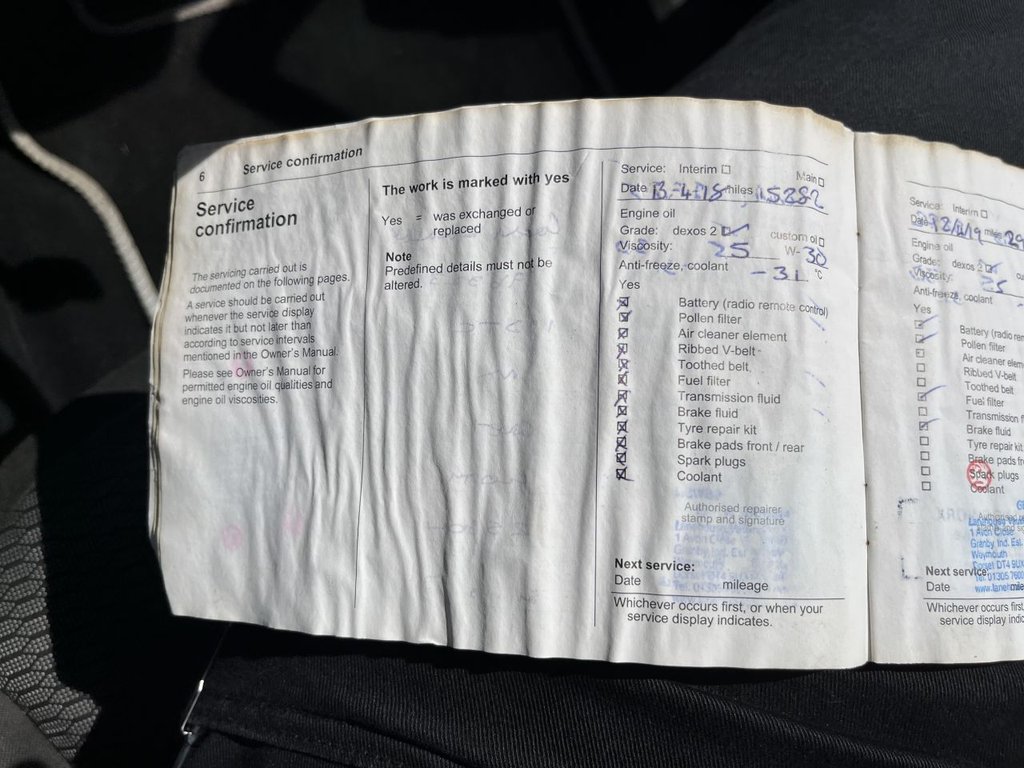 6 Service confirmation
Service
confirmation
The servicing carried out is
documented on the following pages.
A service should be carried out
whenever the service display
indicates it but not later than
according to service intervals
mentioned in the Owner's Manual.
Please see Owner's Manual for
permitted engine oil qualities and
engine oil viscosities.
The work is marked with yes
Yes = was exchanged or
replaced
Note
Predefined details must not be
altered.
Service: Interim Main
Date 13-4-18 miles 15382
Engine oil
Grade: dexos 2 custom oil
Viscosity: 25 W- 30
Anti-freeze, coolant -31 °C
Yes
Battery (radio remote control)
Pollen filter
Air cleaner element
Ribbed V-belt
Toothed belt
Fuel filter
Transmission fluid
Brake fluid
Tyre repair kit
Brake pads front / rear
Spark plugs
Coolant
Authorised repairer
stamp and signature
1 Avon Close
Granby Ind. Est
Next service:
Date mileage
Whichever occurs first, or when your
service display indicates.
Service: Interim
Date 12/4/19 miles 29
Engine oil
Grade: dexos 2
Viscosity: 25
Anti-freeze, coolant
Yes
Battery (radio rem
Pollen filter
Air cleaner elem
Ribbed V-belt
Toothed belt
Fuel filter
Transmission f
Brake fluid
Tyre repair kit
Brake pads fr
Spark plugs
Coolant
1 Avon Close
Granby Ind. Est.
Weymouth
Dorset DT4 9UX
Tel: 01305 760
Next service:
Date
Whichever occurs first
service display indic